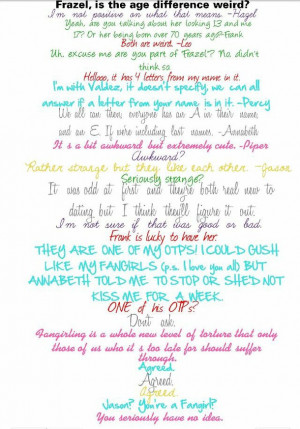 Frazel, is the age difference weird?
I'm not positive on what that means. -Hazel
Yeah, are you talking about her looking 13 and me
17? Or her being born over 70 years ago?-Frank
Both are weird. -Leo
Uh, excuse me are you part of Frazel? No, didn't
think so
Hellooo, it has 4 letters from my name in it.
I'm with Valdez, it doesn't specify, we can all
answer if a letter from your name is in it. -Percy
We all can then, everyone has an A in their name,
and an E. If were including last names. -Annabeth
It s a bit awkward but extremely cute. -Piper
Awkward?
Rather strange but they like each other. -Jason
Seriously strange?
It was odd at first and they're both real new to
dating but I think they'll figure it out.
I'm not sure if that was good or bad.
Frank is lucky to have her.
THEY ARE ONE OF MY OTPS! I COULD GUSH
LIKE MY FANGIRLS (p.s. I love you all) BUT
ANNABETH TOLD ME TO STOP OR SHED NOT
KISS ME FOR A WEEK.
ONE of his OTPs?
Don't ask.
Fangirling is a whole new level of torture that only
those of us who it s too late for should suffer
through.
Agreed.
Agreed.
Agreed.
Jason? You're a Fangirl?
You seriously have no idea.